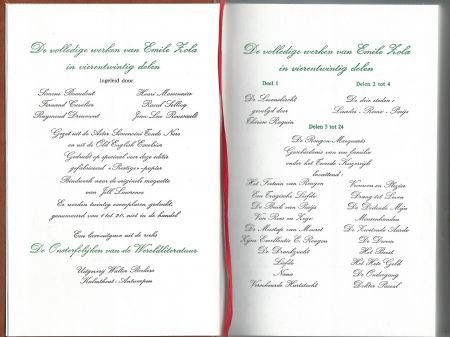 De volledige werken van Emile Zola
in vierentwintig delen
Ingeleid door
Simone Henri
Fernand Raoul
Raymond Jean
Gezet uit de Aster Simoncini Tonda Nas
en uit de Old English Excelsior
Gedrukt op speciaal voor deze editie
gefabriceerd «Prestige»-papier
Bindwerk naar de originele maquette
van Jill Laurence
Er werden twintig exemplaren gedrukt,
genummerd van 1 tot 20, niet in de handel
Een luxe-uitgave uit de reeks
De Onsterfelijken van de Wereldliteratuur
Uitgeverij Walter Beckers
Kalmthout - Antwerpen
De volledige werken van Emile Zola
in vierentwintig delen
Deel 1
De
gevolgd door
Thérèse Raquin
Delen 2 tot 4
De drie steden:
Lourdes - Rome - Parijs
Delen 5 tot 24
De Rougon-Macquarts
Geschiedenis van een familie
onder het Tweede Keizerrijk
bevattend:
Het Fortuin van Rougon
Een Tragische Liefde
De Buik van Parijs
Van Roes en Zege
De Misstap van Mouret
Zijne Excellentie E. Rougon
De Drankzucht
Liefde
Nana
Verschuurde Hartstocht
Vrouwen en Plezier
Drang tot Leven
De Dodende Mijn
Mensenlanden
De Zwetende Aarde
De Droom
Het Beest
Het Hete Geld
De Ondergang
Dokter Pascal